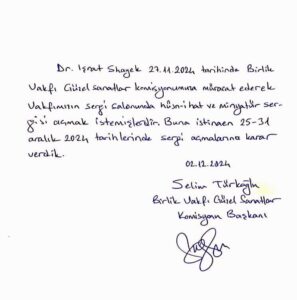 Dr. Işrat Shayek 27.11.2024 tarihinde Birlik
Vakfı Güzel sanatlar komisyonumuna müracat ederek
Vakfımızın sergi salonunda hüsn-i hat ve minyatür ser-
gisi açmak istemişlerdir. Buna istinaen 25-31
aralık 2024 tarihlerinde sergi açmalarına karar
verdik.
02.12.2024
Selim Türkoğlu
Birlik Vakfı Güzel Sanatlar
Komisyon Başkanı